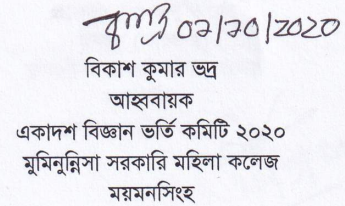 02/10/2020
বিকাশ কুমার ভদ্র
আহ্ববায়ক
একাদশ বিজ্ঞান ভর্তি কমিটি ২০২০
মুমিনুন্নিসা সরকারি মহিলা কলেজ
ময়মনসিংহ